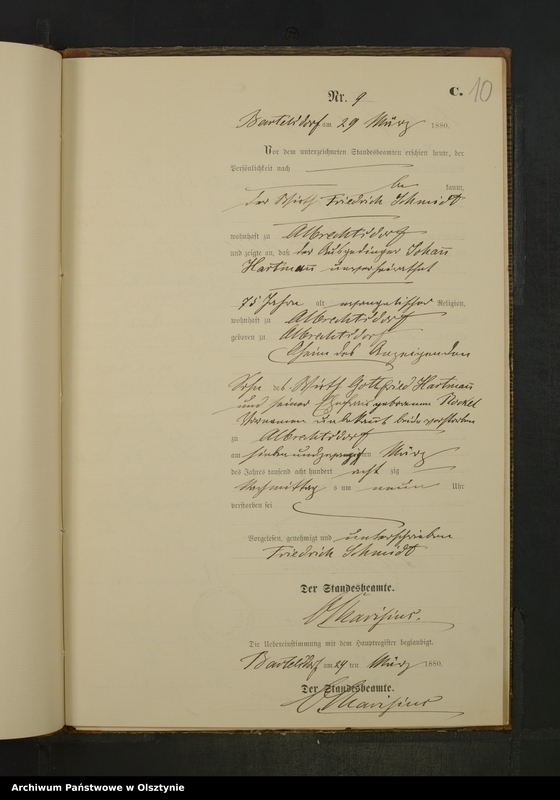 C. 10
Nr. 9
Bartelsdorf am 29 März 1880.
Vor dem unterzeichneten Standesbeamten erschien heute, der
Persönlichkeit nach
be kannt,
der Wirth Friedrich Schmidt
wohnhaft zu Albrechtsdorf
und zeigte an, daß der Ausgedinger Johann
Hartmann unverheirathet
75 Jahre alt evangelischer Religion,
wohnhaft zu Albrechtsdorf
geboren zu Albrechtsdorf
Oheim des Anzeigenden
Sohn des Wirth Gottfried Hartmann
und seiner Ehefrau geborenen
Vornamen unbekannt beide verstorben
zu Albrechtsdorf
am siebenundzwanzigsten März
des Jahres tausend acht hundert acht zig
Nachmittag s um neun Uhr
verstorben sei
Vorgelesen, genehmigt und unterschrieben
Friedrich Schmidt
Der Standesbeamte.
Die Uebereinstimmung mit dem Hauptregister beglaubigt.
Bartelsdorf am 29 ten März 1880.
Der Standesbeamte.
Archiwum Państwowe w Olsztynie